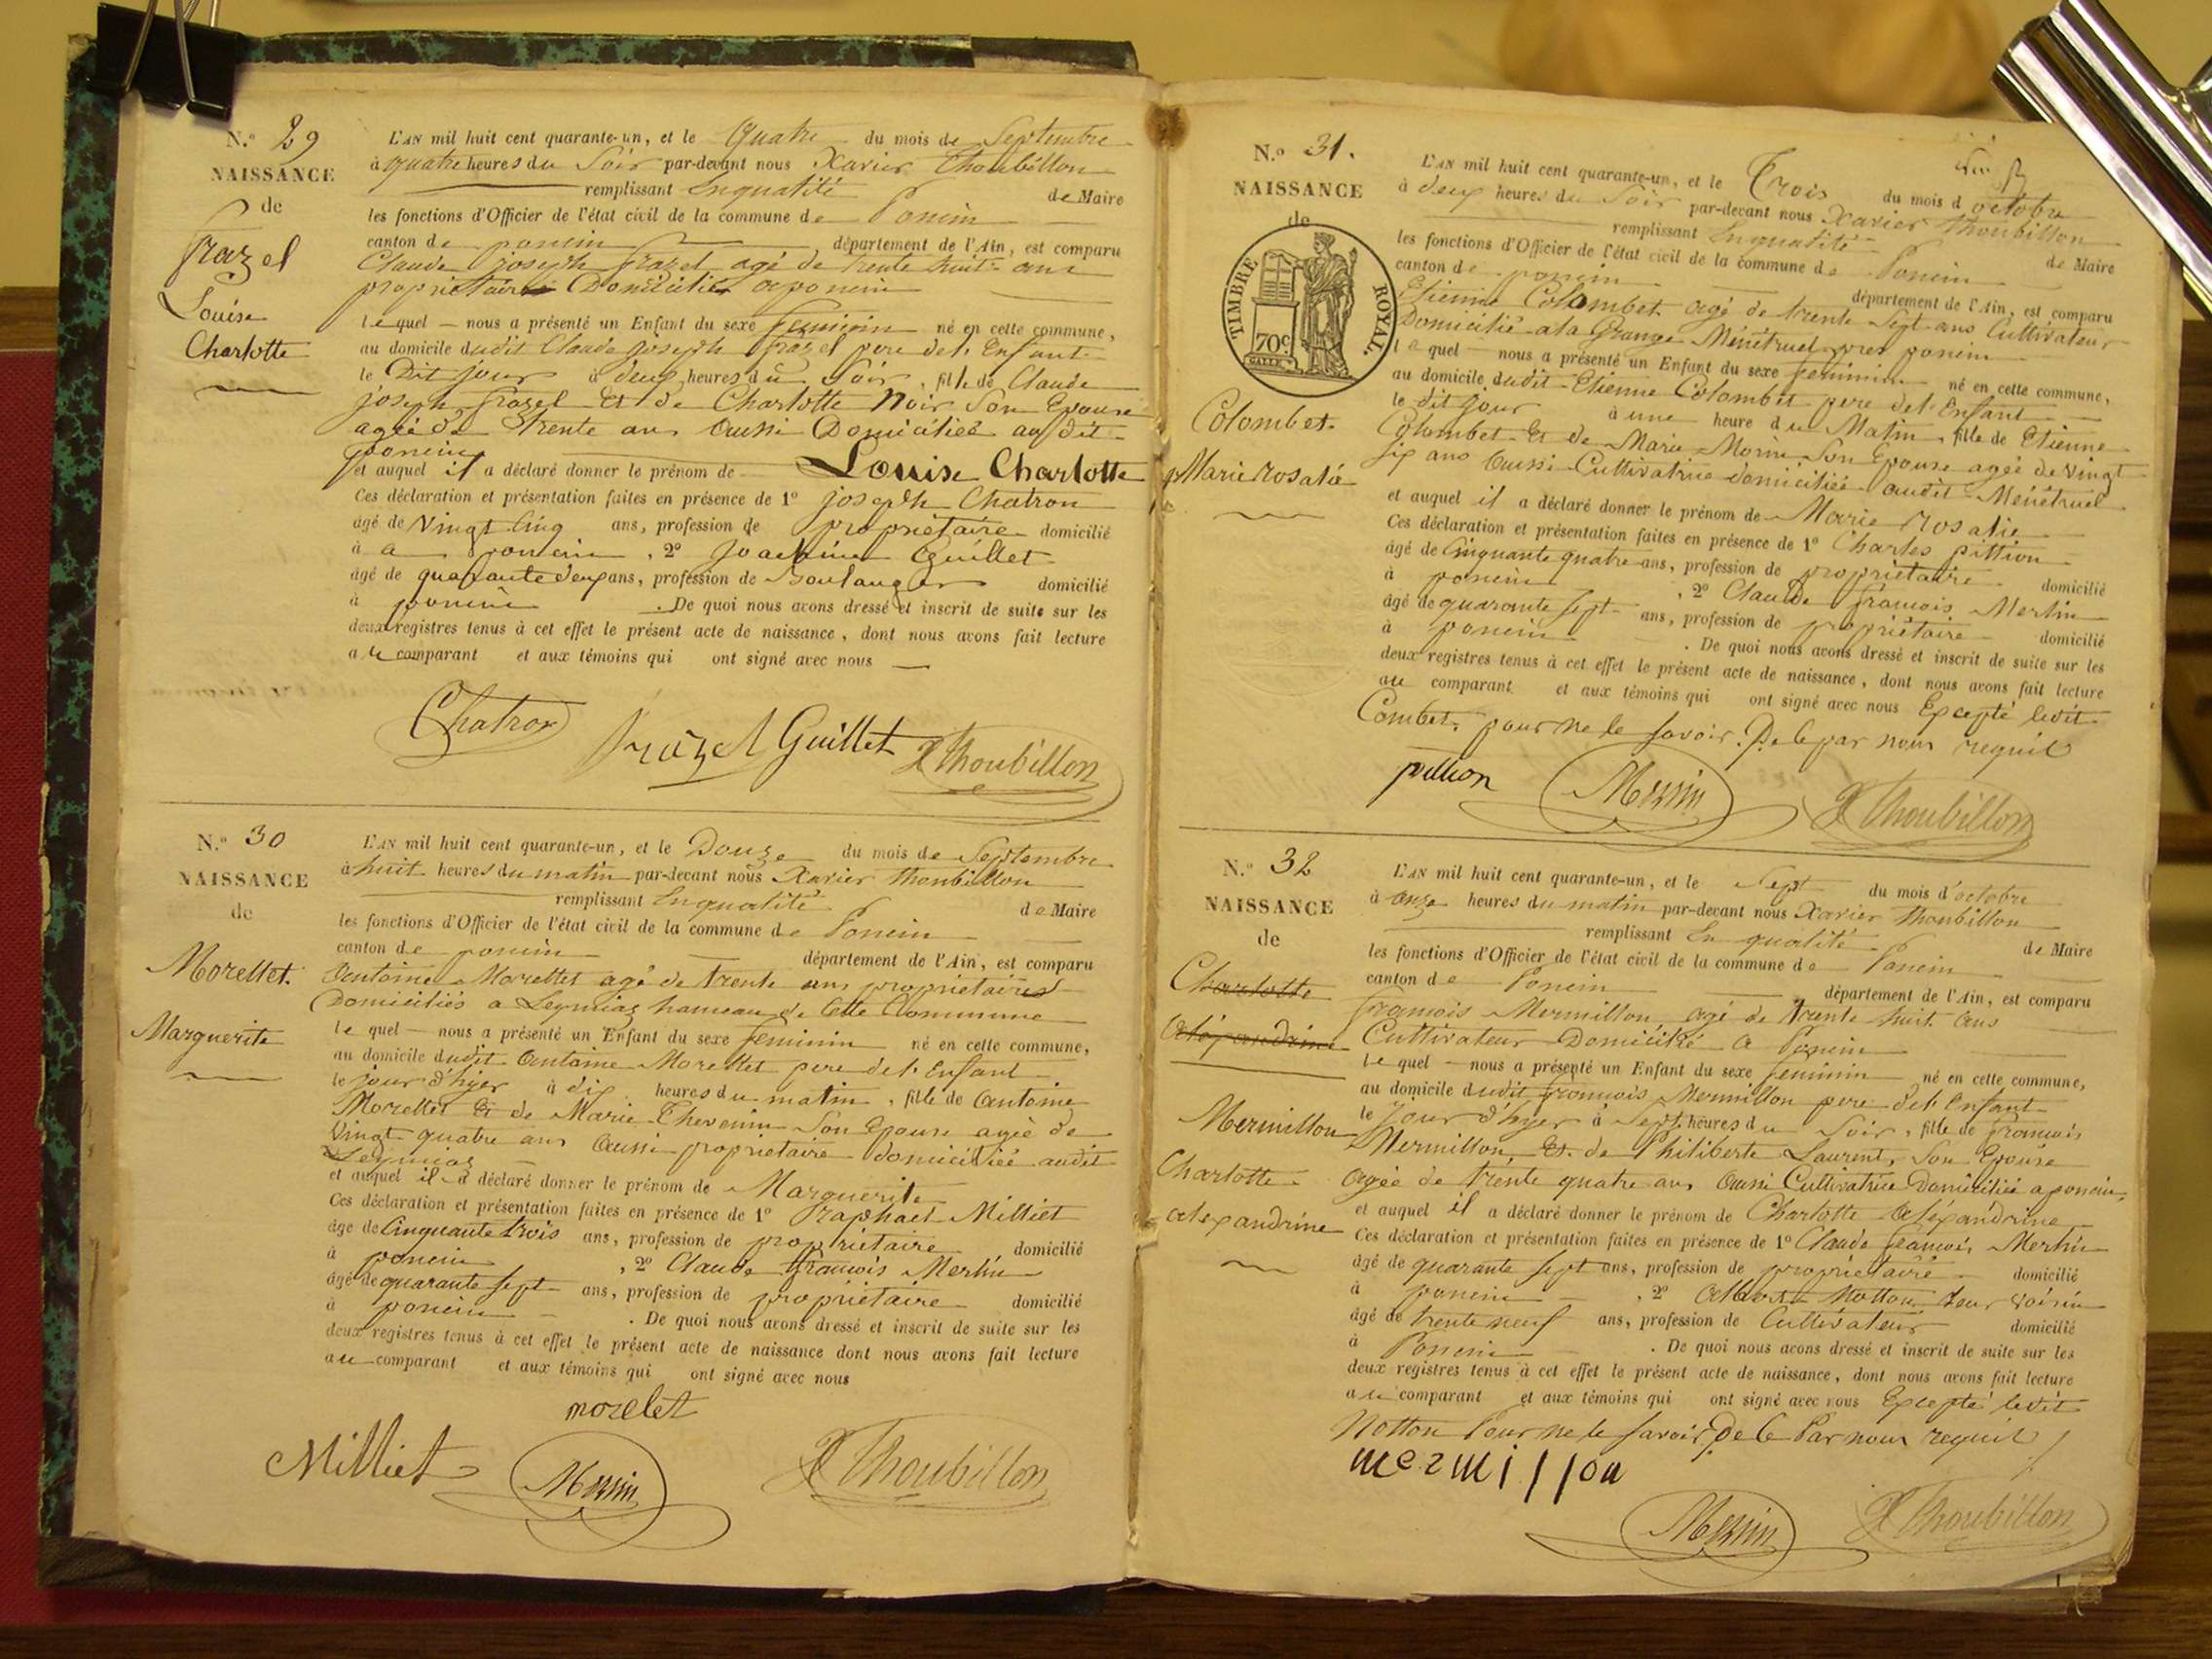 N.º 29
NAISSANCE
de
frazel
Louise
Charlotte
L'AN mil huit cent quarante-un, et le Quatre du mois de Septembre
à quatre heures du Soir par-devant nous Xavier Thoubillon
remplissant Enqualité de Maire
les fonctions d'Officier de l'état civil de la commune de Poncin
canton de poncin, département de l'Ain, est comparu
Claude joseph frazel agé de trente huit ans
proprietaire Domicilié a poncin
le quel nous a présenté un Enfant du sexe feminin né en cette commune,
au domicile dudit Claude joseph frazel pere de l'Enfant
le Dit jour à deux heures du Soir, fille de Claude
joseph frazel Et de Charlotte Noir Son Epouse
agée de trente ans aussi Domiciliée au dit
poncin
et auquel il a déclaré donner le prénom de Louise Charlotte
Ces déclaration et présentation faites en présence de 1º joseph Chatron
âgé de Vingt Cinq ans, profession de propriétaire domicilié
à a poncin, 2º Joachim Guillet
âgé de quarante deux ans, profession de Boulanger domicilié
à poncin. De quoi nous avons dressé et inscrit de suite sur les
deux registres tenus à cet effet le présent acte de naissance, dont nous avons fait lecture
au comparant et aux témoins qui ont signé avec nous
Chatron frazel Guillet X Thoubillon
N.º 30
NAISSANCE
de
Morellet.
Marguerite
L'AN mil huit cent quarante-un, et le Douze du mois de Septembre
à huit heures du matin par-devant nous Xavier thoubillon
remplissant Enqualité de Maire
les fonctions d'Officier de l'état civil de la commune de Poncin
canton de poncin département de l'Ain, est comparu
Antoine Morellet agé de trente ans proprietaire
Domiciliés a Leymiaz hameau de Cette Commune
le quel nous a présenté un Enfant du sexe feminin né en cette commune,
au domicile dudit Antoine Morellet pere de l'Enfant
le jour d'hyer à dix heures du matin, fille de Antoine
Morellet Et de Marie Thevenin Son Epouse agée de
Vingt quatre ans Aussi proprietaire domiciliée audit
Leymiaz
et auquel il a déclaré donner le prénom de Marguerite
Ces déclaration et présentation faites en présence de 1º raphael Milliet
âgé de Cinquante trois ans, profession de propriétaire domicilié
à poncin, 2º Claude françois Merlin
âgé de quarante sept ans, profession de propriétaire domicilié
à poncin. De quoi nous avons dressé et inscrit de suite sur les
deux registres tenus à cet effet le présent acte de naissance dont nous avons fait lecture
au comparant et aux témoins qui ont signé avec nous
morelet
Milliet Merlin X Thoubillon
N.º 31.
NAISSANCE
de
TIMBRE ROYAL.
70c
Colombet.
Marie rosalie
L'AN mil huit cent quarante-un, et le Trois du mois d octobre
à deux heures du Soir par-devant nous Xavier thoubillon
remplissant Enqualité de Maire
les fonctions d'Officier de l'état civil de la commune de Poncin
canton de poncin département de l'Ain, est comparu
Etienne Colombet agé de trente Sept ans Cultivateur
Domicilié a la Grange Ménétruel pres poncin
le quel nous a présenté un Enfant du sexe feminin né en cette commune,
au domicile dudit Etienne Colombet pere de l'Enfant
le dit jour à une heure du Matin, fille de Etienne
Colombet Et de Marie Morin Son Epouse agée de Vingt
six ans Aussi Cultivatrice domiciliée audit Ménétruel
et auquel il a déclaré donner le prénom de Marie rosalie
Ces déclaration et présentation faites en présence de 1º Charles pittion
âgé de Cinquante quatre ans, profession de propriétaire domicilié
à poncin, 2º Claude françois Merlin
âgé de quarante sept ans, profession de propriétaire domicilié
à poncin. De quoi nous avons dressé et inscrit de suite sur les
deux registres tenus à cet effet le présent acte de naissance, dont nous avons fait lecture
au comparant et aux témoins qui ont signé avec nous Excepté ledit
Combet, pour ne le savoir. De Ce par nous requis
pittion Merlin X Thoubillon
N.º 32
NAISSANCE
de
Charlotte
Alexandrine
Mermillon
Charlotte
alexandrine
L'AN mil huit cent quarante-un, et le Sept du mois d'octobre
à onze heures du matin par-devant nous Xavier thoubillon
remplissant En qualité de Maire
les fonctions d'Officier de l'état civil de la commune de Poncin
canton de Poncin département de l'Ain, est comparu
françois Mermillon agé de trente huit ans
Cultivateur Domicilié a Poncin
le quel nous a présenté un Enfant du sexe feminin né en cette commune,
au domicile dudit françois Mermillon pere de l'Enfant
le jour d'hyer à Sept heures du Soir, fille de françois
Mermillon, Et de Philiberte Laurent, Son Epouse
agée de trente quatre ans Aussi Cultivatrice Domiciliée a poncin,
et auquel il a déclaré donner le prénom de Charlotte Alexandrine
Ces déclaration et présentation faites en présence de 1º Claude françois Merlin
âgé de quarante sept ans, profession de propriétaire domicilié
à poncin, 2º Notton leur voisin
âgé de trente neuf ans, profession de Cultivateur domicilié
à Poncin. De quoi nous avons dressé et inscrit de suite sur les
deux registres tenus à cet effet le présent acte de naissance, dont nous avons fait lecture
au comparant et aux témoins qui ont signé avec nous Excepté ledit
Notton Pour ne le savoir, De Ce Par nous requis
mermillon
Merlin X Thoubillon